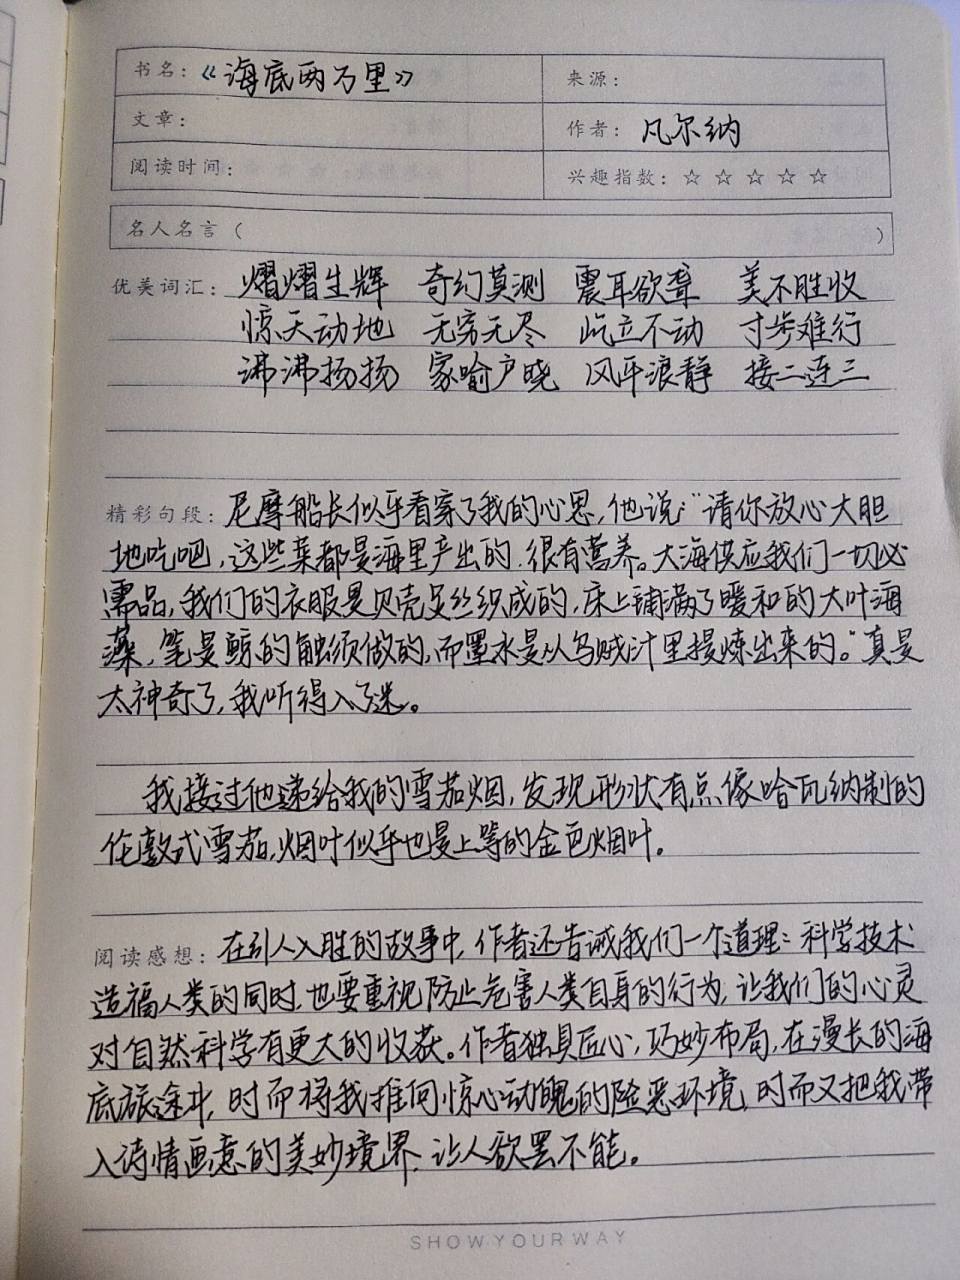 书名：《海底两万里》 来源：
文章： 作者：凡尔纳
阅读时间： 兴趣指数：☆ ☆ ☆ ☆ ☆
名人名言（ ）
优美词汇：熠熠生辉 奇幻莫测 震耳欲聋 美不胜收
惊天动地 无穷无尽 屹立不动 寸步难行
沸沸扬扬 家喻户晓 风平浪静 接二连三
精彩句段：尼摩船长似乎看穿了我的心思，他说：“请你放心大胆
地吃吧，这些菜都是海里产出的，很有营养。大海供应我们一切必
需品，我们的衣服是贝壳足丝织成的，床上铺满了暖和的大叶海
藻，笔是鲸的触须做的，而墨水是从乌贼汁里提炼出来的。”真是
太神奇了，我听得入了迷。
我接过他递给我的雪茄烟，发现形状有点像哈瓦纳制的
伦敦式雪茄，烟叶似乎也是上等的金色烟叶。
阅读感想：在引人入胜的故事中，作者还告诫我们一个道理：科学技术
造福人类的同时，也要重视防止危害人类自身的行为，让我们的心灵
对自然科学有更大的收获。作者独具匠心，巧妙布局，在漫长的海
底旅途中，时而将我推向惊心动魄的险恶环境，时而又把我带
入诗情画意的美妙境界，让人欲罢不能。
SHOW YOUR WAY